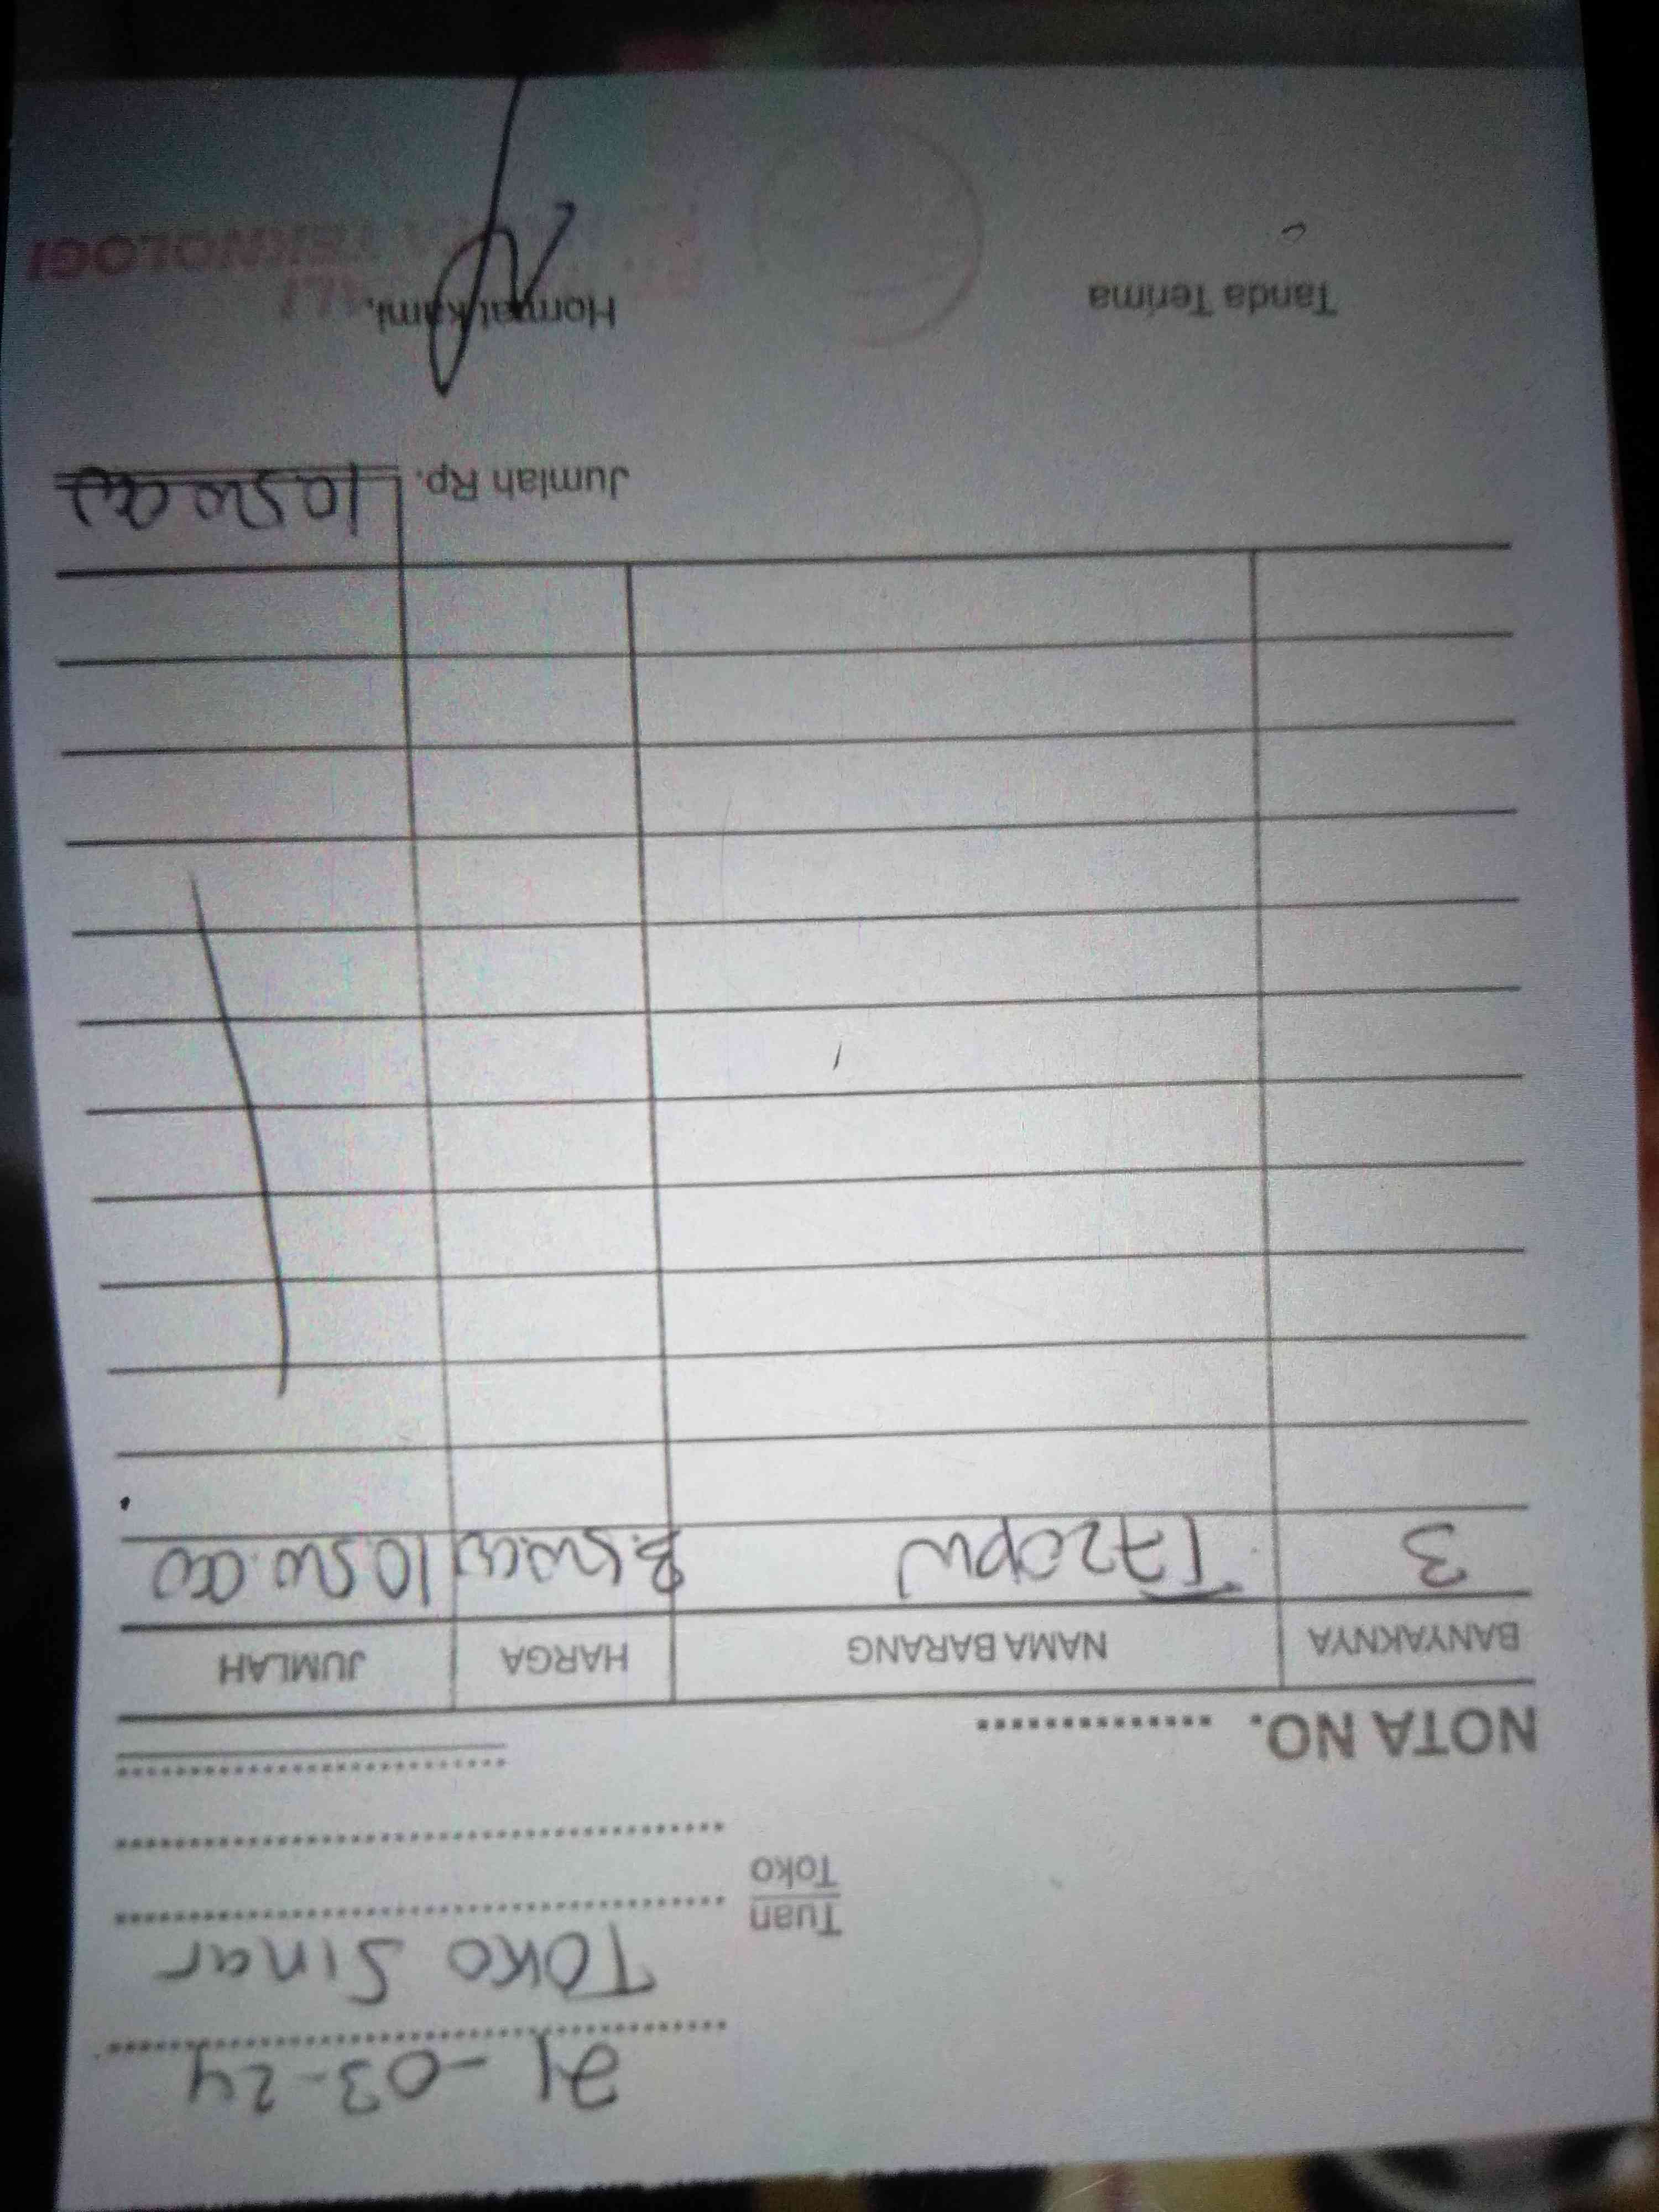 21-03-24
Toko Sinar
Tuan
Toko
NOTA NO.
BANYAKNYA NAMA BARANG HARGA JUMLAH
3 T720PW 3.500.000 10.500.000
Jumlah Rp. 10.500.000
Tanda Terima Hormat kami,
TEKNOLOGI